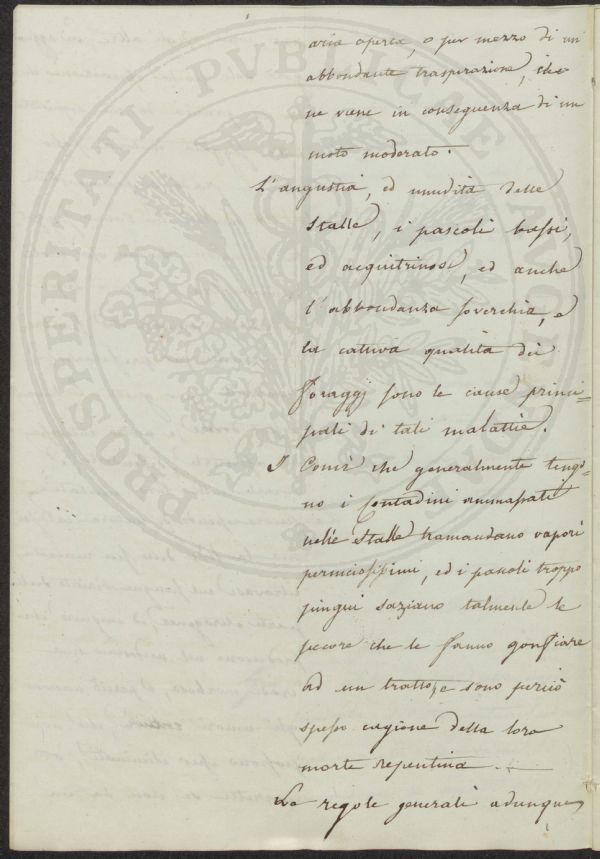 aria aperta, o per mezzo di un
abbondante traspirazione, che
ne viene in conseguenza di un
moto moderato.
L'angustia, ed umidità delle
Stalle, i pascoli bassi,
ed acquitrinosi, ed anche
l'abbondanza soverchia, e
la cattiva qualità dei
Foraggj sono le cause princi=
pali di tali malattie.
I Concj che generalmente tengo=
no i Contadini ammassati
nelle Stalle tramandano vapori
perniciosissimi, ed i pascoli troppo
pingui saziano talmente le
pecore che le fanno gonfiare
ad un tratto, e sono perciò
spesso cagione della loro
morte repentina.
Le regole generali adunque
PROSPERITATI PUBLICAE